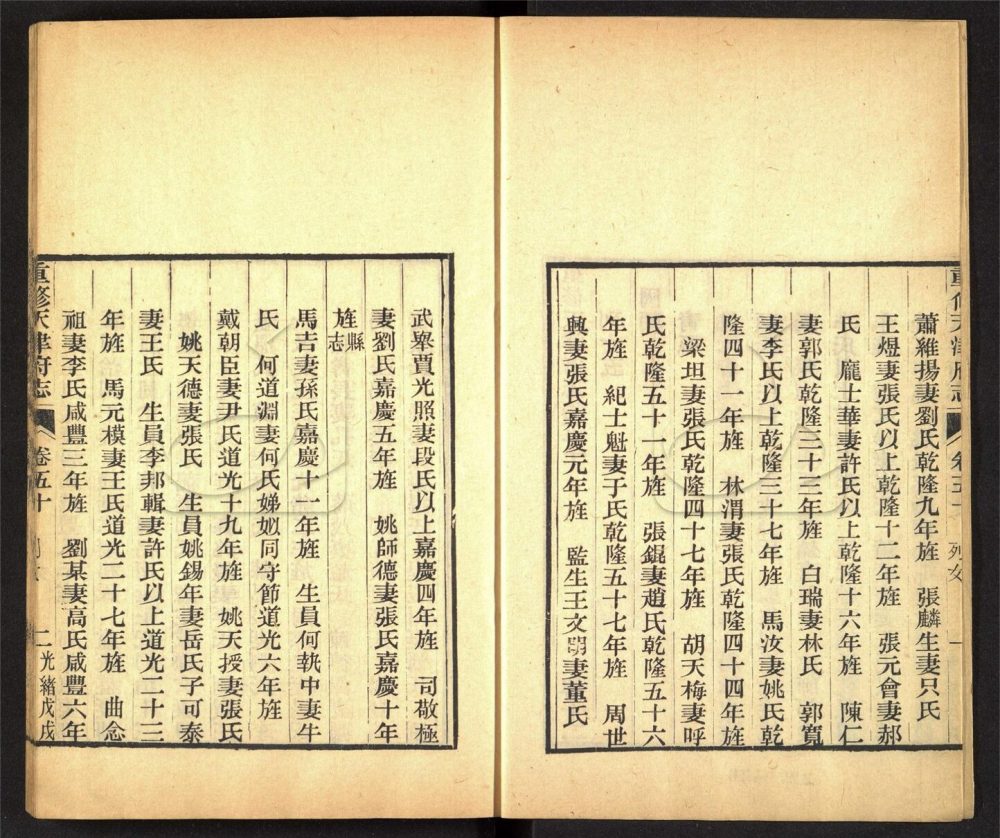 重修天津府志 卷五十 列女 一
蕭維揚妻劉氏乾隆九年旌 張麟生妻只氏
王煜妻張氏以上乾隆十二年旌 張元會妻郝
氏 龐士華妻許氏以上乾隆十六年旌 陳仁
妻郭氏乾隆三十三年旌 白瑞妻林氏 郭寬
妻李氏以上乾隆三十七年旌 馬汝妻姚氏乾
隆四十一年旌 林渭妻張氏乾隆四十四年旌
梁坦妻張氏乾隆四十七年旌 胡天梅妻呼
氏乾隆五十一年旌 張錕妻趙氏乾隆五十六
年旌 紀士魁妻于氏乾隆五十七年旌 周世
興妻張氏嘉慶元年旌 監生王文妻董氏
武舉賈光照妻段氏以上嘉慶四年旌 司敬極
妻劉氏嘉慶五年旌 姚師德妻張氏嘉慶十年
旌縣志
馬吉妻孫氏嘉慶十一年旌 生員何執中妻牛
氏 何道淵妻何氏娣姒同守節道光六年旌
戴朝臣妻尹氏道光十九年旌 姚天授妻張氏
姚天德妻張氏 生員姚錫年妻岳氏子可泰
妻王氏 生員李邦輯妻許氏以上道光二十三
年旌 馬元模妻王氏道光二十七年旌 曲念
祖妻李氏咸豐三年旌 劉某妻高氏咸豐六年
重修天津府志 卷五十 列女 二 光緒戊戌